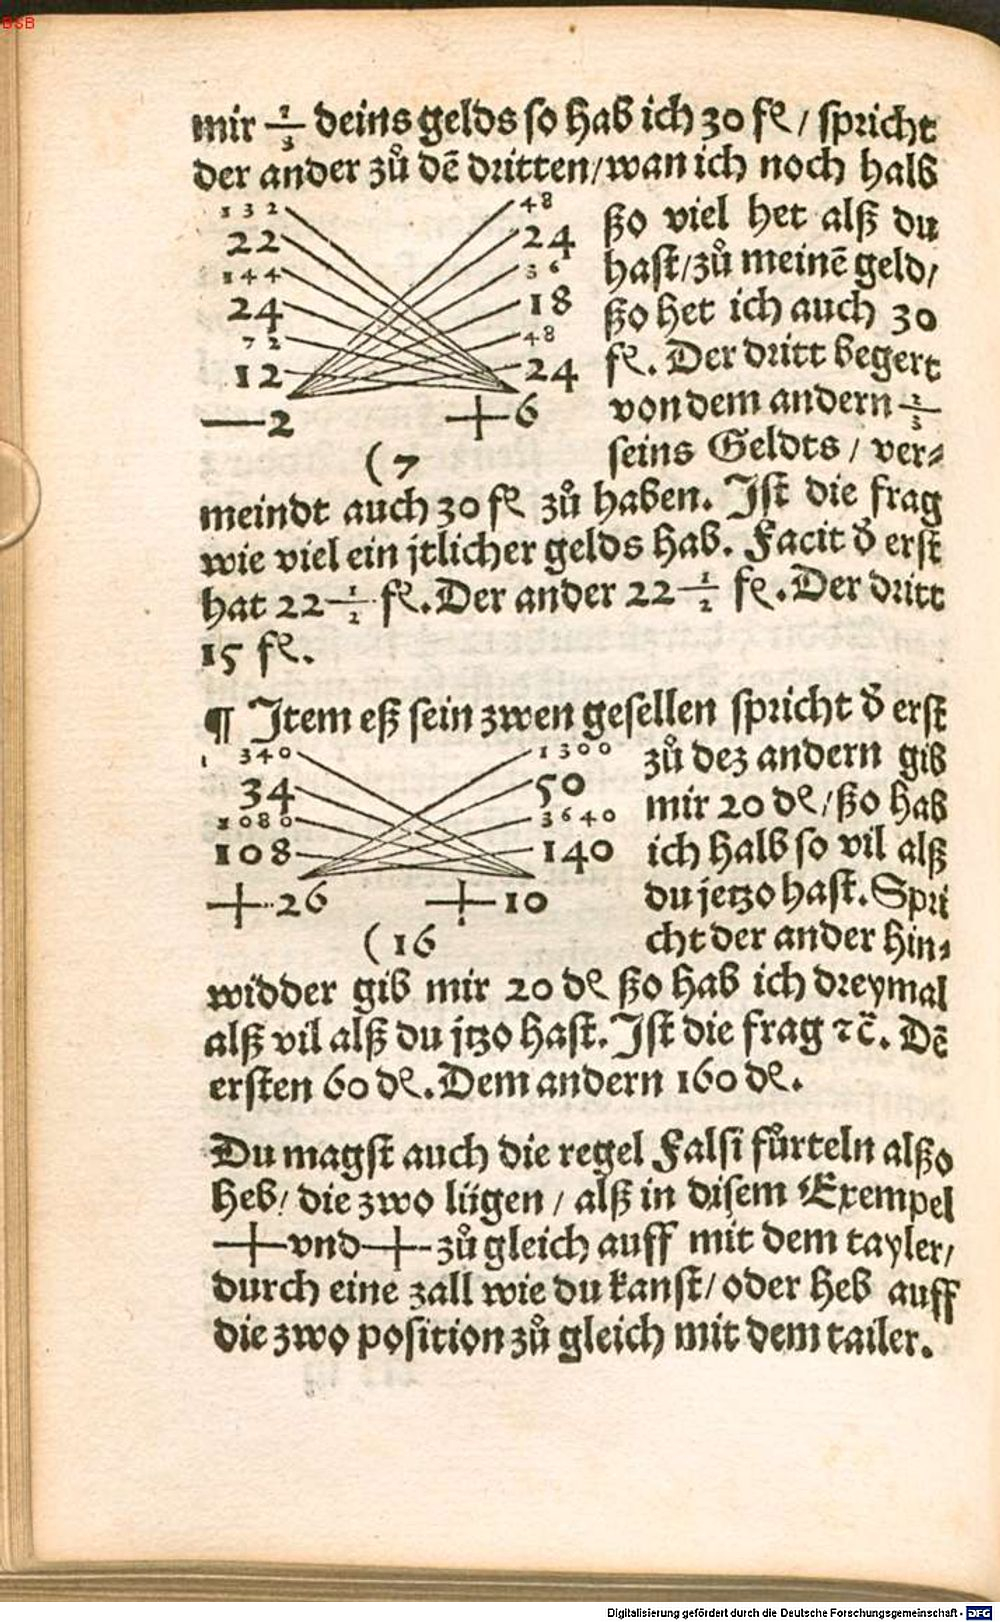 BSB
mir 1/3 deins gelds so hab ich 30 fl / spricht
der ander zů dē dritten/wan ich noch halb
132 48 ßo viel het alß du
22 24
144 36 hast/zů meinē geld/
24 18 ßo het ich auch 30
72 48
12 24 fl. Der dritt begert
—2 +6 von dem andern 1/3
(7 seins Geldts / ver⸗
meindt auch 30 fl zů haben. Ist die frag
wie viel ein jtlicher gelds hab. Facit đ erst
hat 22 1/2 fl. Der ander 22 1/2 fl. Der dritt
15 fl.
¶ Item eß sein zwen gesellen spricht đ erst
1 340 1300 zů dez andern gib
34 50 mir 20 dl/ßo hab
1080 3640
108 140 ich halb so vil alß
+26 +10 du jetzo hast. Spri
(16 cht der ander hin⸗
widder gib mir 20 dl ßo hab ich dreymal
alß vil alß du jtzo hast. Ist die frag ⁊c̄. Dē
ersten 60 dl. Dem andern 160 dl.
Du magst auch die regel Falsi fůrteln alßo
heb/ die zwo lügen / alß in disem Exempel
+ vnd + zů gleich auff mit dem tayler/
durch eine zall wie du kanst/oder heb auff
die zwo position zů gleich mit dem tailer.
Digitalisierung gefördert durch die Deutsche Forschungsgemeinschaft - DFG